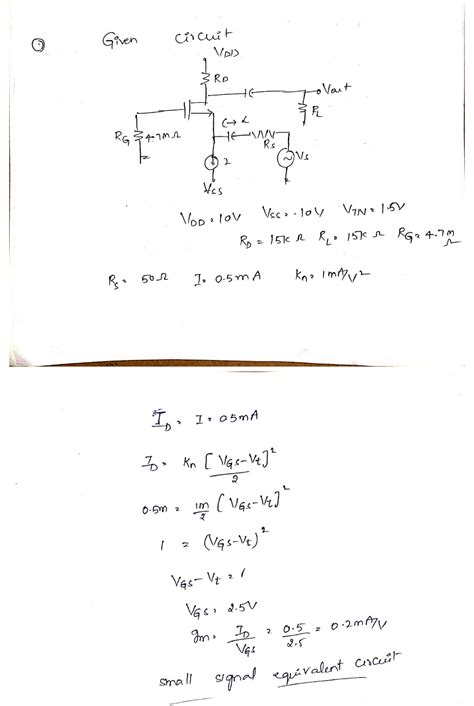 ① Given circuit
VDD
RD
Vout
RL
RG 4.7MΩ
RS
VS
I
VSS
VDD = 10V VSS = -10V VTN = 1.5V
RD = 15k Ω RL = 15k Ω RG = 4.7MΩ
RS = 50Ω I = 0.5mA Kn = 1mA/V²
ID = I = 0.5mA
ID = Kn [VGS-Vt]²/2
0.5m = 1m/2 [VGS-Vt]²
1 = (VGS-Vt)²
VGS-Vt = 1
VGS = 2.5V
gm = ID/VGS = 0.5/2.5 = 0.2mA/V
small signal equivalent circuit